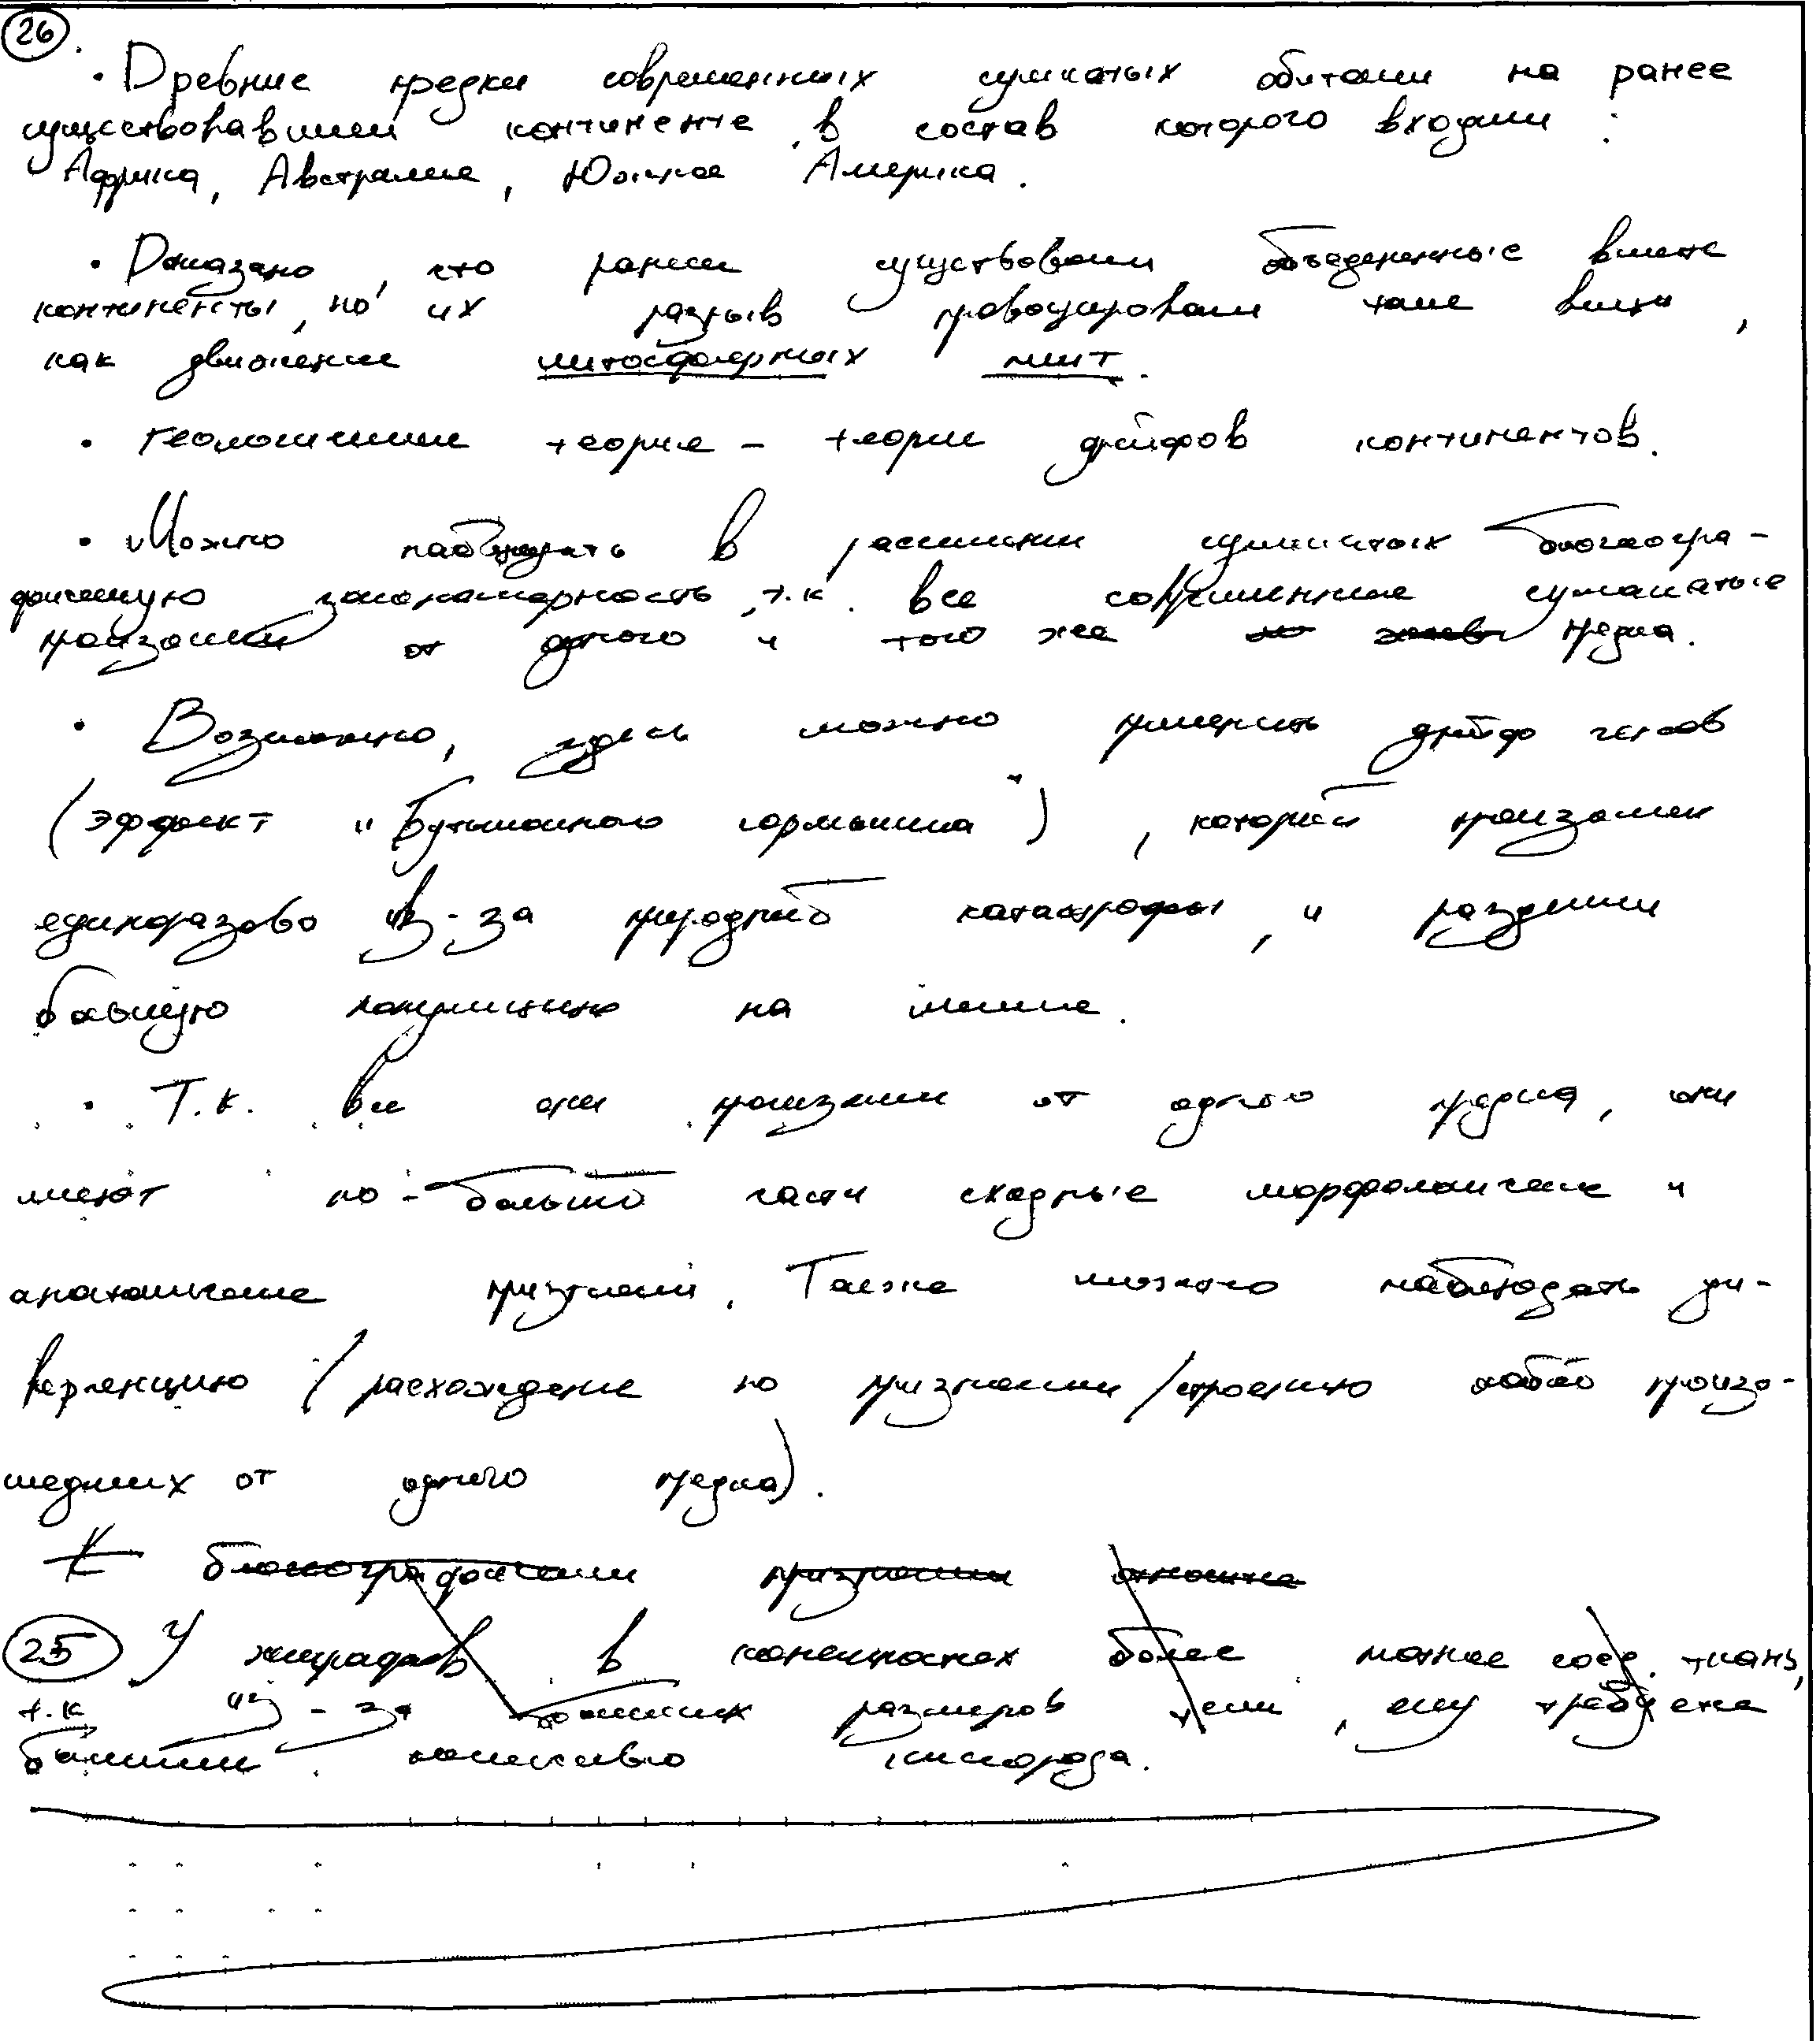 26
• Древние предки современных сумчатых обитали на ранее
существовавшем континенте, в состав которого входили:
Африка, Австралия, Южная Америка.
• Доказано, что раньше существовали объеденённые вместе
континенты, но их разрыв провоцировали такие вещи,
как движение литосферных плит.
• Геологический теория – теория дрейфов континентов.
• Можно наблюдать в расселении сумчатых биогеогра-
фическую закономерность, т.к. все современные сумчатые
произошли от одного и того же предка.
• Возможно, здесь можно применить дрейф генов
(эффект "бутылочного горлышка"), который произошел
единоразово из-за природной катастрофы, и разделил
большую популяцию на мелкие.
• Т.к. все они произошли от одного предка, они
имеют по-большей части сходные морфологические и
анатомические признаки. Также можно наблюдать ди-
вергенцию (расхождение по признакам/строению особей произо-
шедших от одного предка).
К биогеографическим признакам
25 У жирафов в конечностях более плотная соед. ткань,
т.к из-за больших размеров тела, ему требуется
большее количество кислорода.